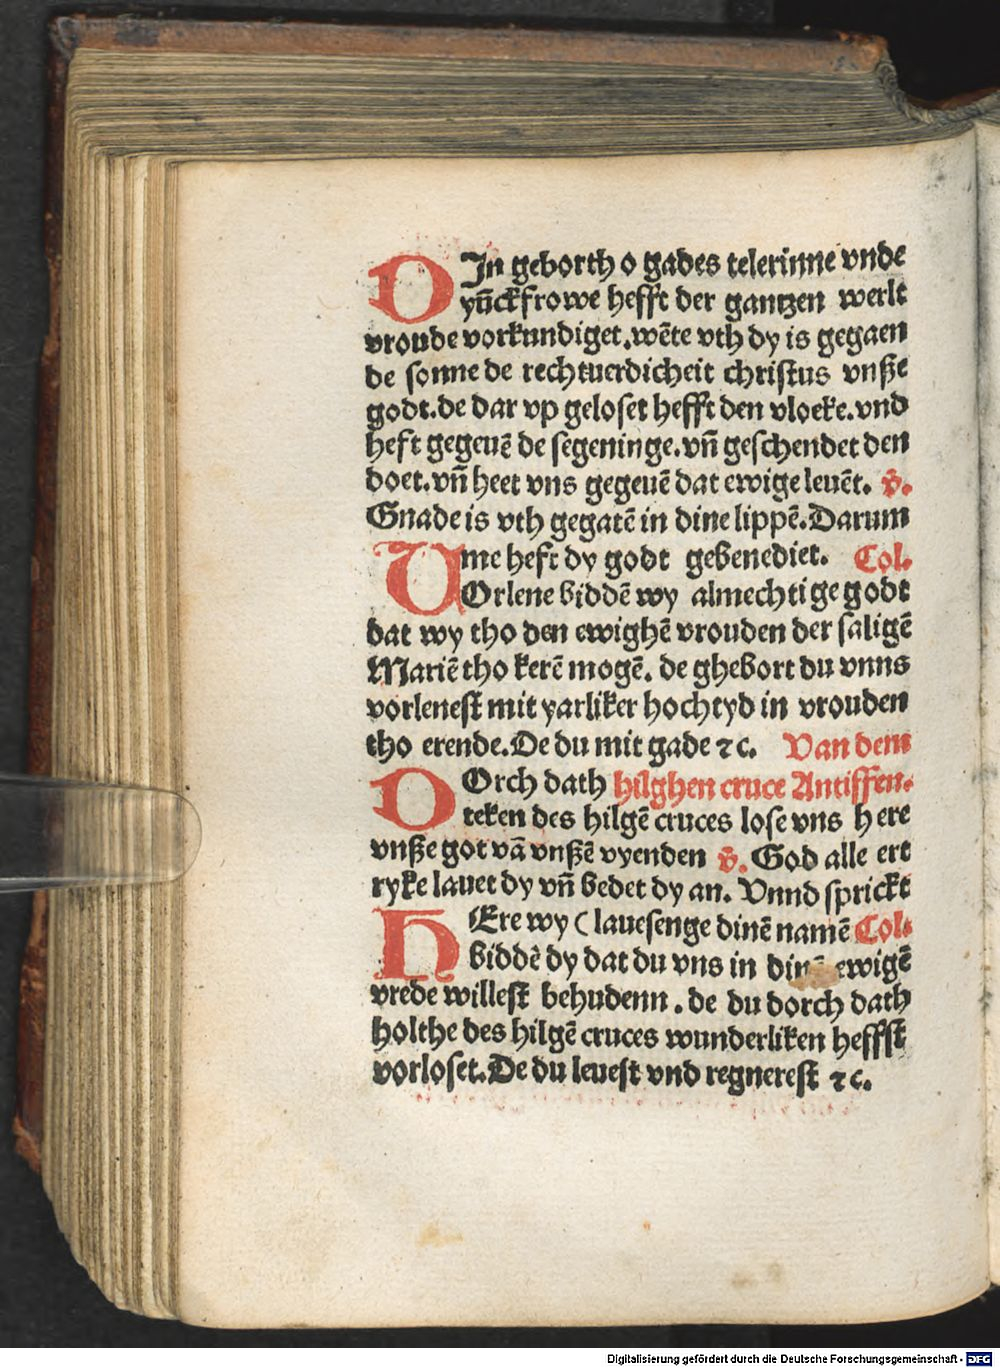 DIn geborth o gades telerinne vnde
yũckfrowe hefft der gantzen werlt
vroude vorkundiget. wẽte vth dy is gegaen
de sonne de rechtuerdicheit christus vnße
godt. de dar vp geloset hefft den vloeke. vnd
heft gegeuẽ de segeninge. vñ geschendet den
doet. vñ heet vns gegeuẽ dat ewige leuẽt. v̄.
Gnade is vth gegatẽ in dine lippẽ. Darum
me heft dy godt gebenediet. Col.
VOrlene biddẽ wy almechtige godt
dat wy tho den ewighẽ vrouden der saligẽ
Mariẽ tho kerẽ mogẽ. de ghebort du vnns
vorlenest mit yarliker hochtyd in vrouden
tho erende. De du mit gade ⁊c. Van dem
DOrch dath hilghen cruce Antiffen.
teken des hilgẽ cruces lose vns here
vnße got vã vnßẽ vyenden v̄. God alle ert
ryke lauet dy vñ bedet dy an. Vnnd sprickt
HEre wy (lauesenge dinẽ namẽ Col.
biddẽ dy dat du vns in ewigẽ
vrede willest behudenn. de du dorch dath
holthe des hilgẽ cruces wunderliken heffst
vorloset. De du leuest vnd regnerest ⁊c.
Digitalisierung gefördert durch die Deutsche Forschungsgemeinschaft - DFG